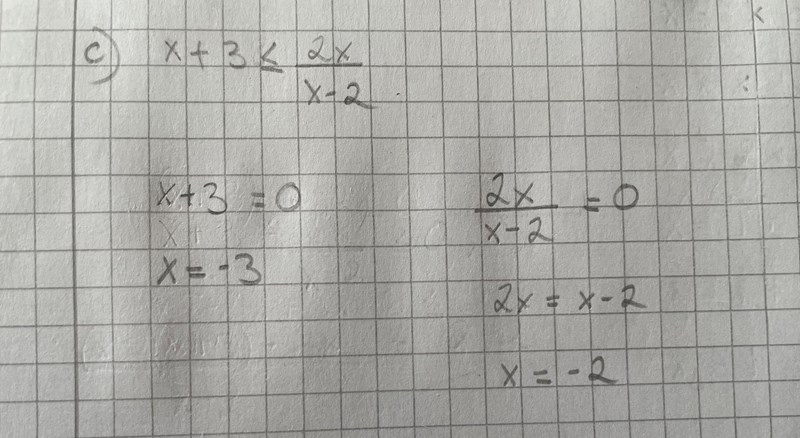 c) x + 3 ≤ 2x / x-2
x+3 = 0
x = -3
2x / x-2 = 0
2x = x-2
x = -2